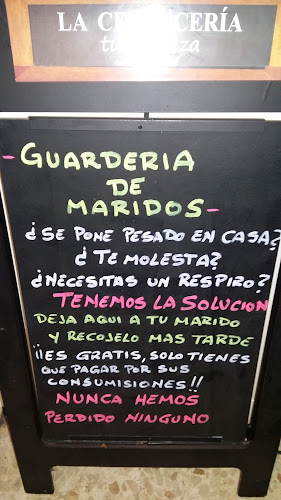 LA CERVECERÍA
- GUARDERIA
DE
MARIDOS -
¿SE PONE PESADO EN CASA?
¿TE MOLESTA?
¿NECESITAS UN RESPIRO?
TENEMOS LA SOLUCION
DEJA AQUI A TU MARIDO
Y RECOJELO MAS TARDE
¡¡ES GRATIS, SOLO TIENES
QUE PAGAR POR SUS
CONSUMISIONES!!
NUNCA HEMOS
PERDIDO NINGUNO